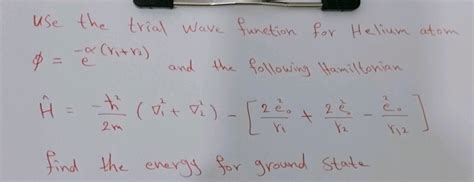 Use the trial wave function for Helium atom
ϕ = e^{-α(r₁+r₂)} and the following Hamiltonian
Ĥ = -ħ²/2m (∇₁² + ∇₂²) - [2e₀²/r₁ + 2e₀²/r₂ - e₀²/r₁₂]
find the energy for ground state